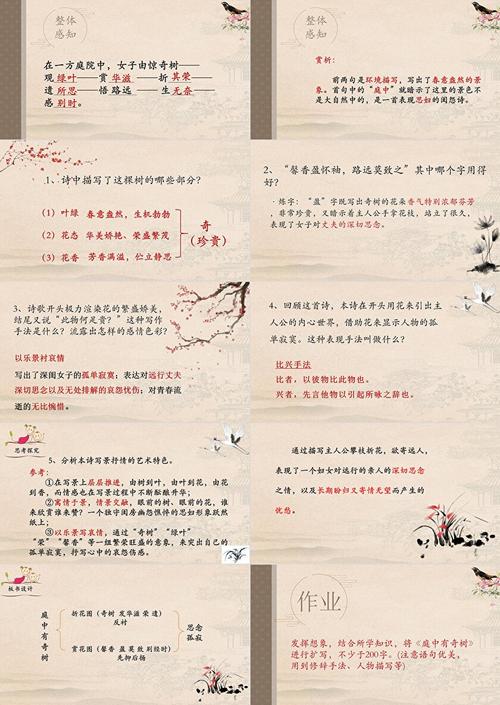 整体
感知
在一方庭院中，女子由惊奇树——
观 绿叶——赏 华滋 ——折 其荣——
遗 所思——悟 路远 ——生 无奈——
感 别时。
整体
感知
赏析：
前两句是环境描写，写出了春意盎然的景
象。首句中的“庭中”就暗示了这里的景色不
是大自然中的，是一首表现思妇的闺怨诗。
1、诗中描写了这棵树的哪些部分？
(1) 叶绿 春意盎然，生机勃勃
(2) 花态 华美娇艳、荣盛繁茂
(3) 花香 芳香满溢，伫立静思
奇
(珍贵)
2、“馨香盈怀袖，路远莫致之”其中哪个字用得
好？
·炼字：“盈”字既写出奇树的花来香气特别浓郁芬芳
，非常珍贵，又暗示着主人公手拿花枝，站立了很久，
表现了女子对丈夫的深切思念。
3、诗歌开头极力渲染花的繁盛娇美，
结尾又说“此物何足贵？”这种写作
手法是什么？流露出怎样的感情色彩？
以乐景衬哀情
写出了深闺女子的孤单寂寞；表达对远行丈夫
深切思念以及无处排解的哀怨忧伤；对青春流
逝的无比惋惜。
4、回顾这首诗，本诗在开头用花来引出主
人公的内心世界，借助花来显示人物的孤
单寂寞。这种表现手法叫做什么？
比兴手法
比者，以彼物比此物也。
兴者，先言他物以引起所咏之辞也。
思考探究
5、分析本诗写景抒情的艺术特色。
参考：
①在写景上层层推进，由树到叶，由叶到花，由花
到香，而情感也在写景过程中不断酝酿升华；
②寓情于景，情景交融，眼前的树、眼前的花，谁
来欣赏谁来赞？一个独守闺房幽怨惆怅的思妇形象跃然
纸上；
③以乐景写哀情，通过“奇树”“绿叶”
“荣”“馨香”等一组繁荣旺盛的意象，来突出自己的
孤单寂寞，抒写心中的哀怨伤感。
通过描写主人公攀枝折花，欲寄远人，
表现了一个妇女对远行的亲人的深切思念
之情，以及长期盼归又寄情无望而产生的
忧愁。
板书设计
庭
中
有
奇
树
折花图 (奇树 发华滋 荣 遗)
反衬
赏花图 (馨香 盈 莫致 别经时)
先抑后扬
思念
孤寂
作业
发挥想象，结合所学知识，将《庭中有奇树》
进行扩写，不少于200字。(注意语句优美，
用到修辞手法、人物描写等)